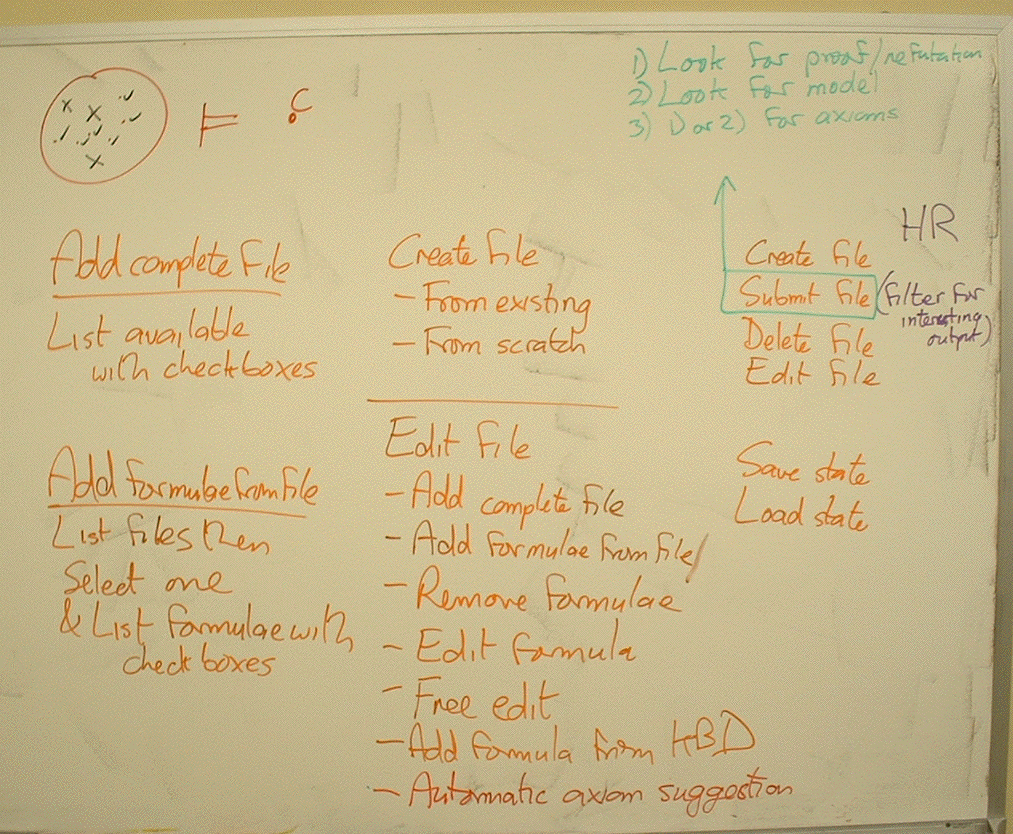 ⊨ C
1) Look for proof/refutation
2) Look for model
3) 1) or 2) for axioms
Add complete file
List available
with checkboxes
Add formulae from file
List files then
Select one
& List formulae with
check boxes
Create file
- From existing
- From scratch
Edit file
- Add complete file
- Add formulae from file
- Remove formulae
- Edit formula
- Free edit
- Add formula from KBD
- Automatic axiom suggestion
HR
Create file
Submit file (filter for
interesting
output)
Delete file
Edit file
Save state
Load state